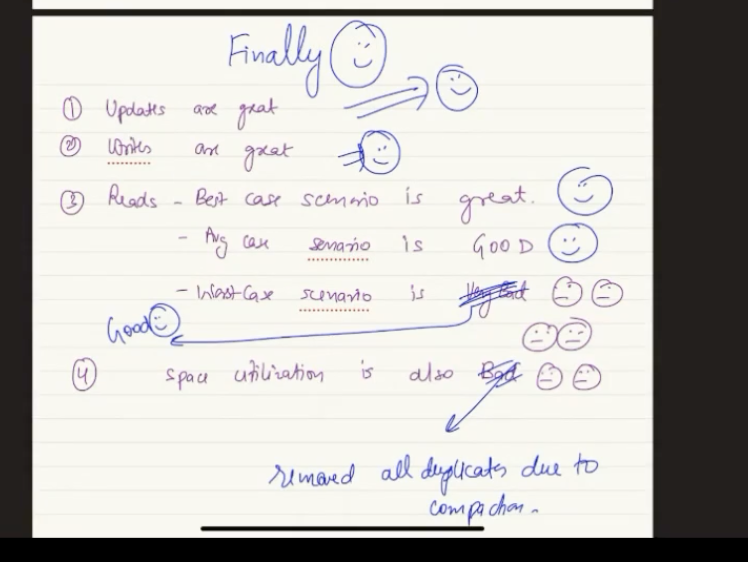 Finally
① Updates are great
② Writes are great
③ Reads - Best case scenario is great.
- Avg case senario is GOOD
- Worst Case scenario is Very Bad
Good
④ Space utilization is also Bad
removed all duplicates due to
compaction.